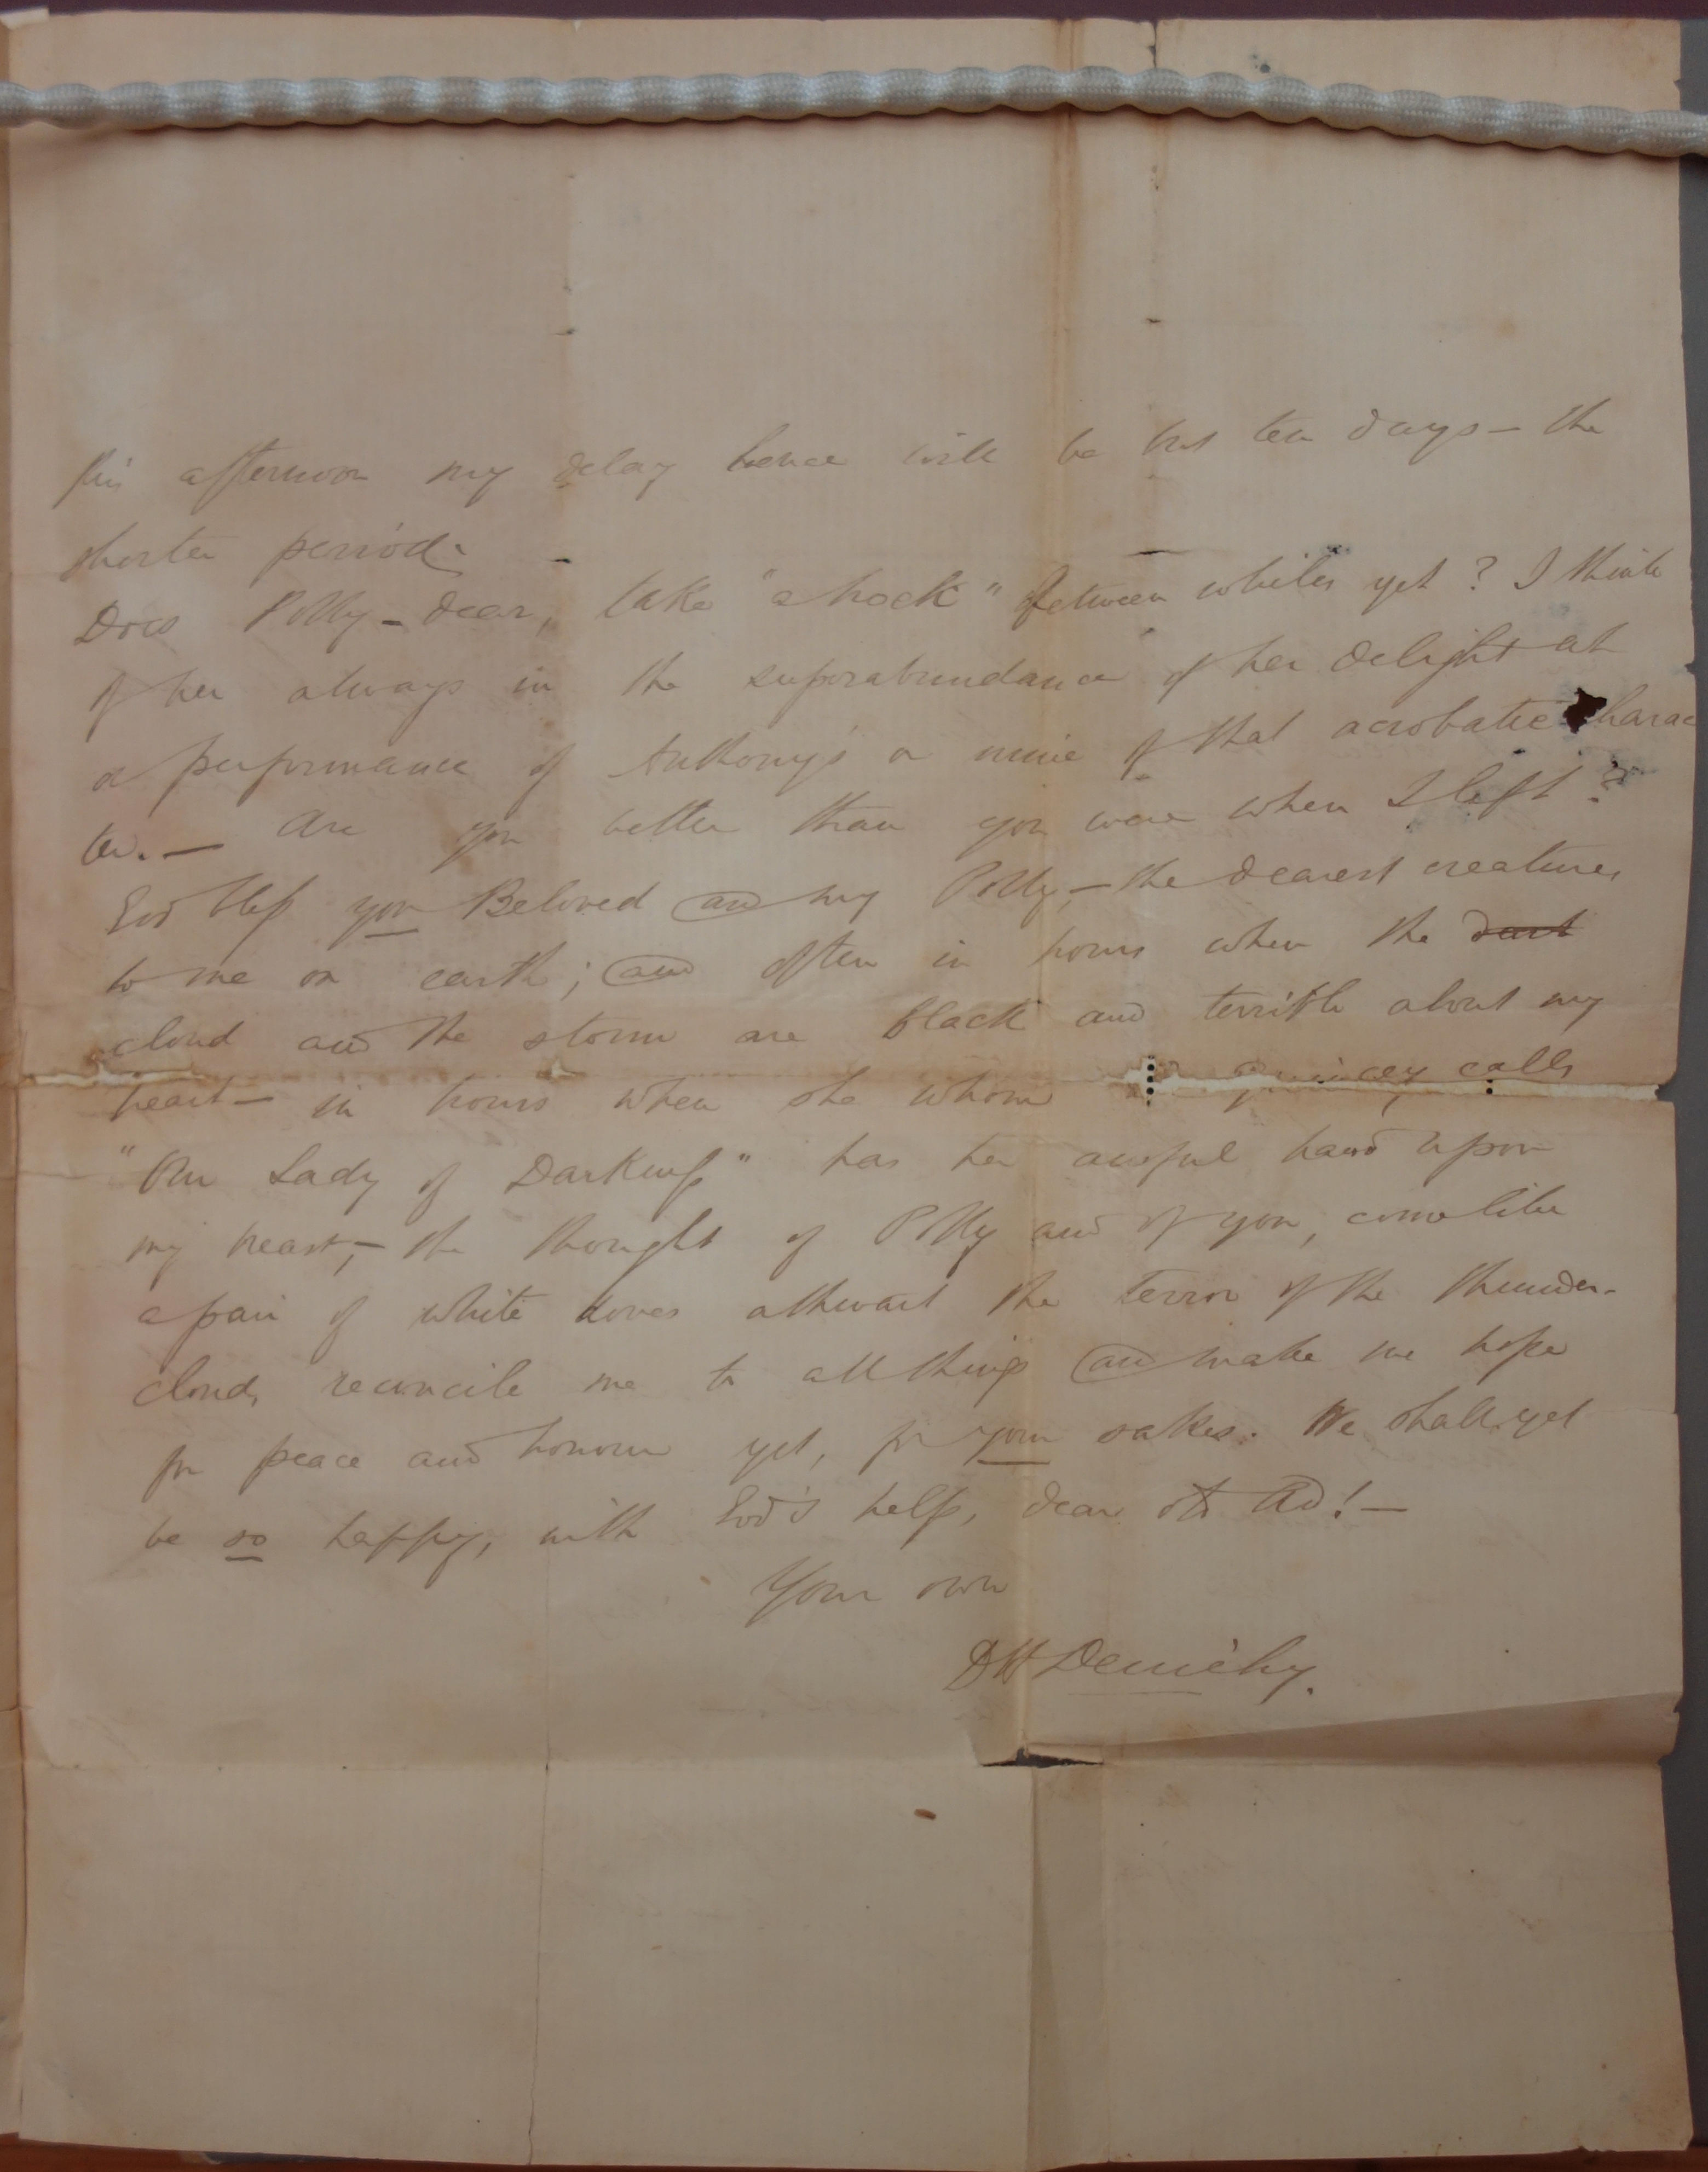 this afternoon my delay hence will be but ten days — the
shorter period.
Does Polly – dear, take "a hock" between whiles yet? I think
of her always in the superabundance of her delight at
a performance of Anthony's or mine of that acrobatic charac
ter. — Are you better than you were when I left?
God bless you Beloved and my Polly, — the dearest creatures
to me on earth; and often in hours when the dark
cloud and the storm are black and terrible about my
heart — in hours when she whom Quincey calls
"Our Lady of Darkness" has her awful hand upon
my heart, — the thought of Polly and of you, come like
a pair of white doves athwart the terror of the thunder-
cloud, reconcile me to all things and make me hope
for peace and honour yet, for your sakes. We shall yet
be so happy, with God's help, dear old Ad! —
Your own
DH Deniéhy.